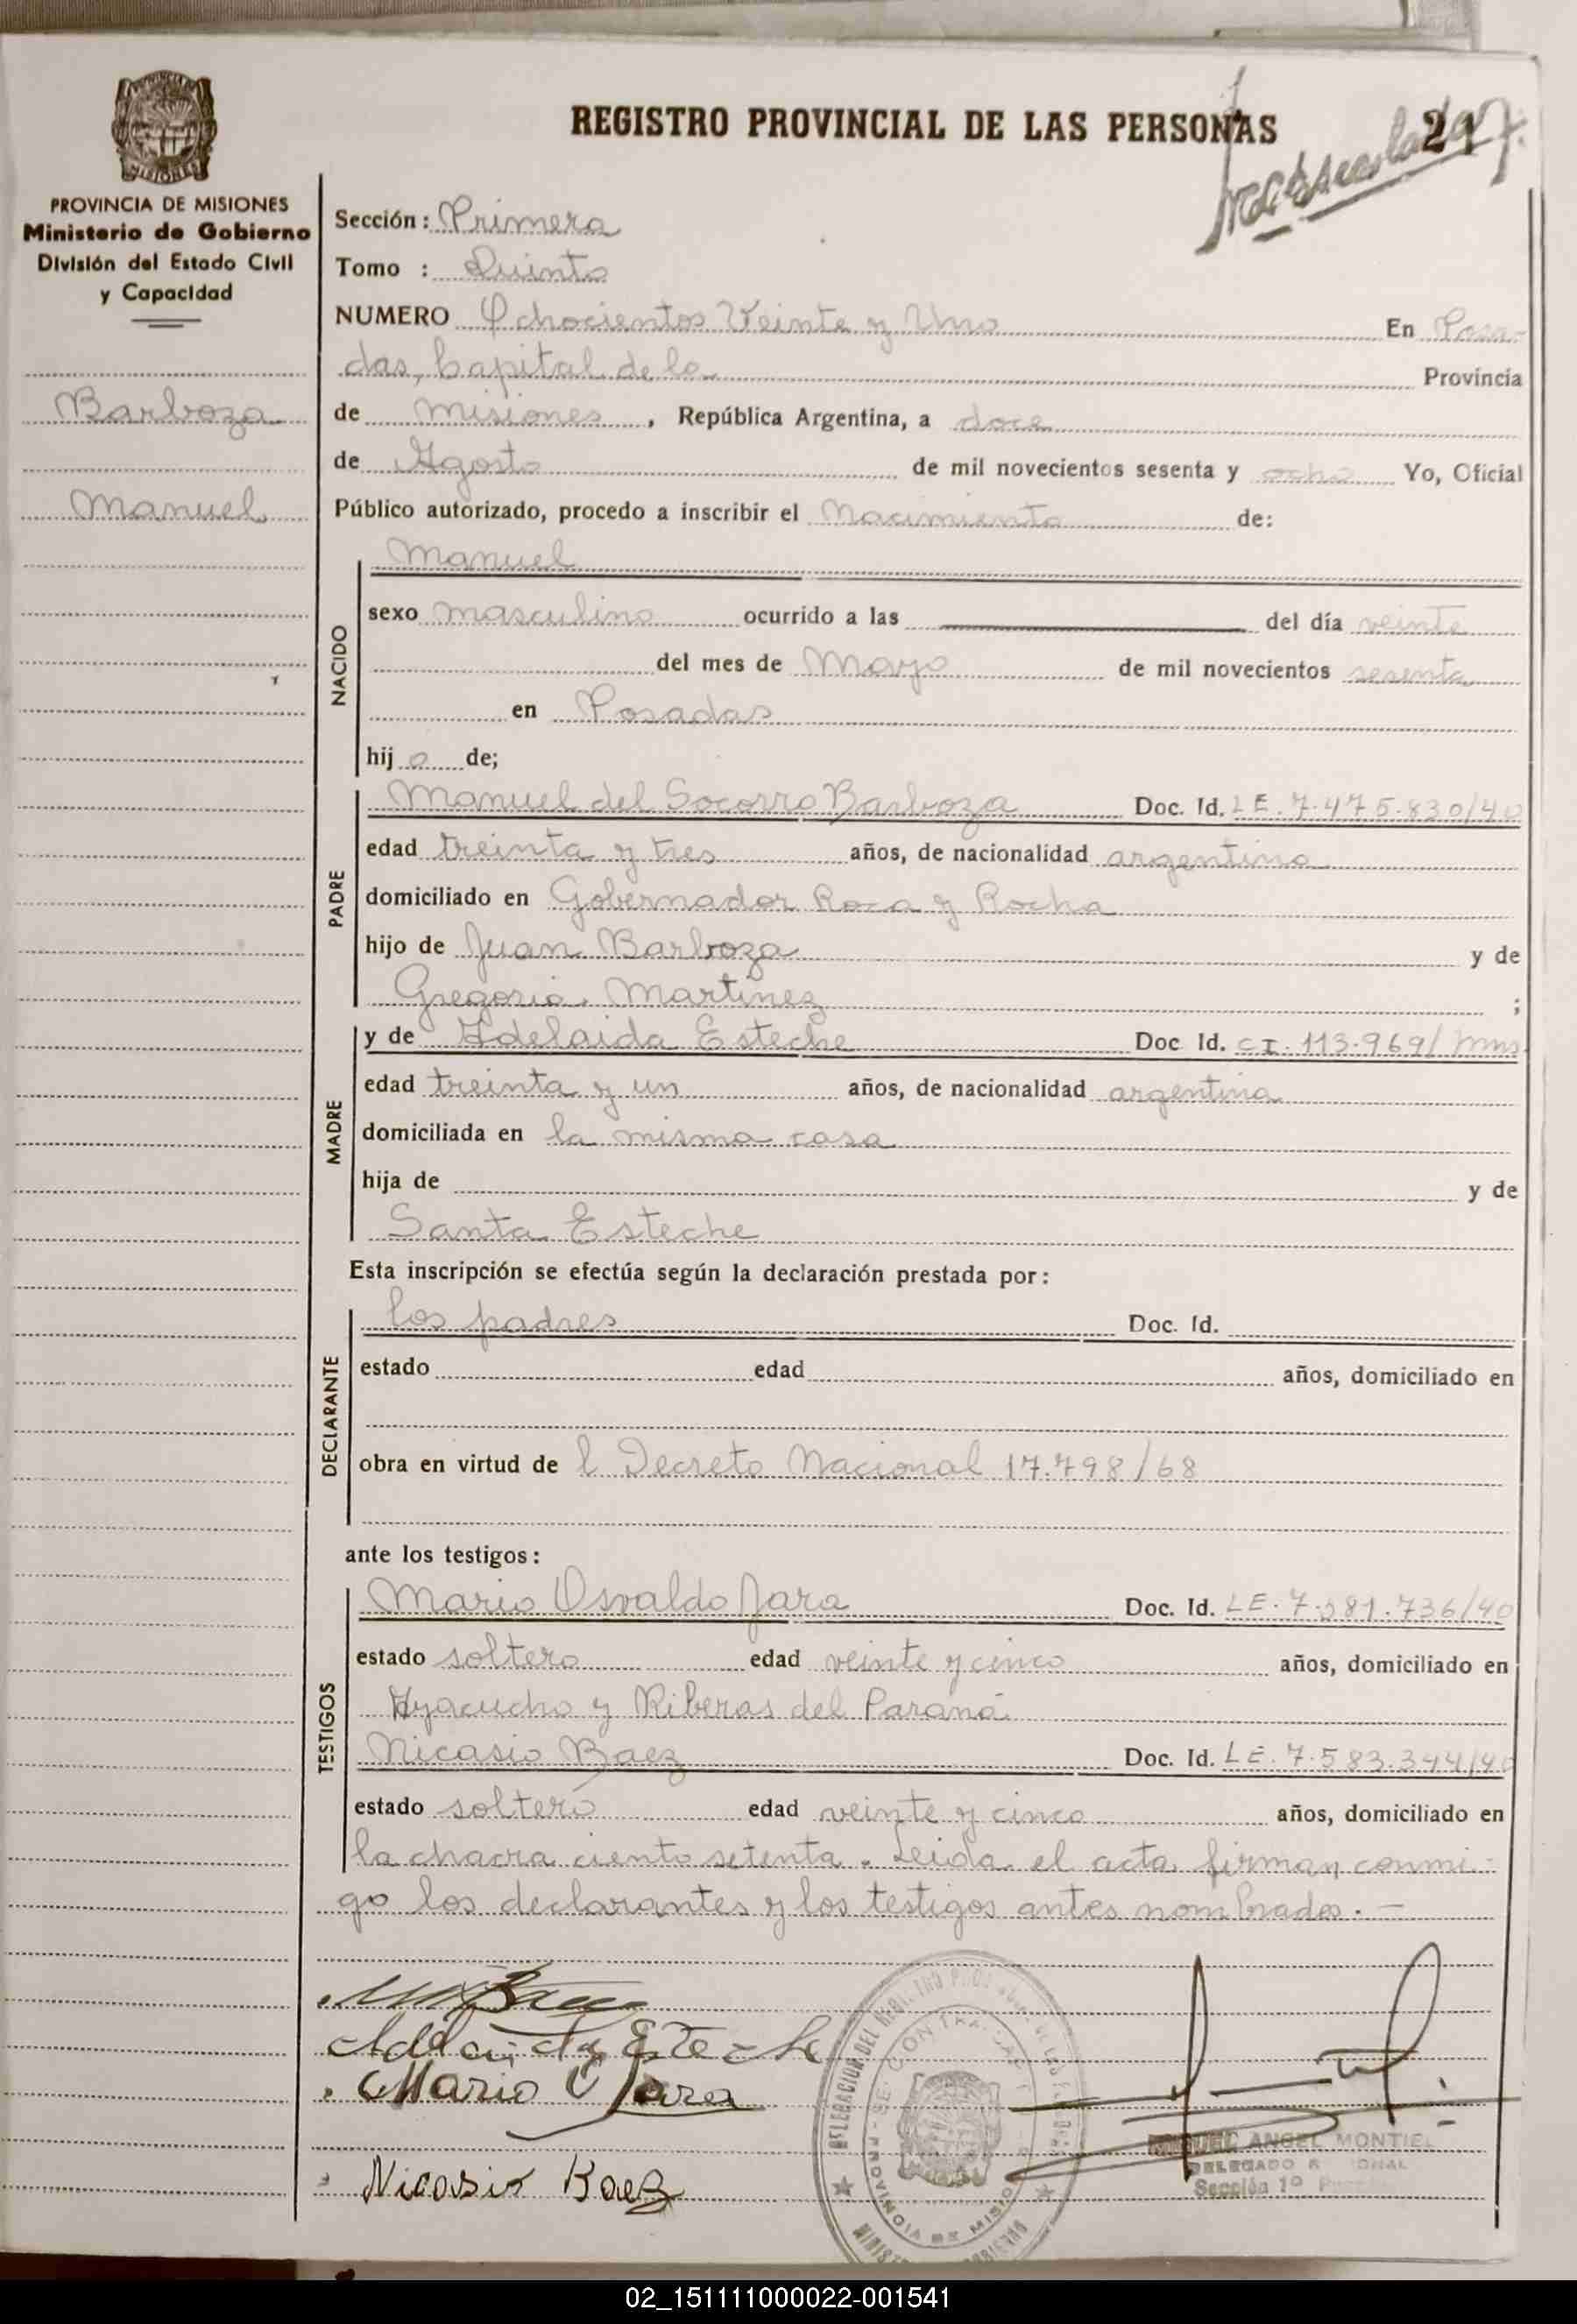 REGISTRO PROVINCIAL DE LAS PERSONAS
21
MISIONES
PROVINCIA DE MISIONES
Ministerio de Gobierno
División del Estado Civil
y Capacidad
Barboza
Manuel
Sección: Primera
Tomo : Quinto
NUMERO Ochocientos Veinte y Uno En Posa-
das, Capital de la Provincia
de Misiones, República Argentina, a doce
de Agosto de mil novecientos sesenta y ocho Yo, Oficial
Público autorizado, procedo a inscribir el Nacimiento de:
NACIDO
Manuel
sexo masculino ocurrido a las del día veinte
del mes de Mayo de mil novecientos sesenta
en Posadas
hij o de;
PADRE
Manuel del Socorro Barboza Doc. Id. LE. 7.475.830/40
edad treinta y tres años, de nacionalidad argentino
domiciliado en Gobernador Roca y Rocha
hijo de Juan Barboza y de
Gregoria Martinez ;
MADRE
y de Adelaida Esteche Doc Id. CI. 113.969/Mns.
edad treinta y un años, de nacionalidad argentina
domiciliada en la misma casa
hija de y de
Santa Esteche
Esta inscripción se efectúa según la declaración prestada por:
DECLARANTE
los padres Doc. Id.
estado edad años, domiciliado en
obra en virtud de l Decreto Nacional 17.798/68
ante los testigos:
TESTIGOS
Mario Osvaldo Jara Doc. Id. LE. 7.581.736/40
estado soltero edad veinte y cinco años, domiciliado en
Ayacucho y Riberas del Paraná
Nicasio Baez Doc. Id. LE. 7.583.344/40
estado soltero edad veinte y cinco años, domiciliado en
la chacra ciento setenta. Leida el acta firman conmi-
go los declarantes y los testigos antes nombrados. —
Adelaida Esteche
Mario O Jara
Nicasio Baez
DELEGACION DEL REGISTRO
PROVINCIA DE MISIONES
MIGUEL ANGEL MONTIEL
DELEGADO
Sección 1º
02_151111000022-001541